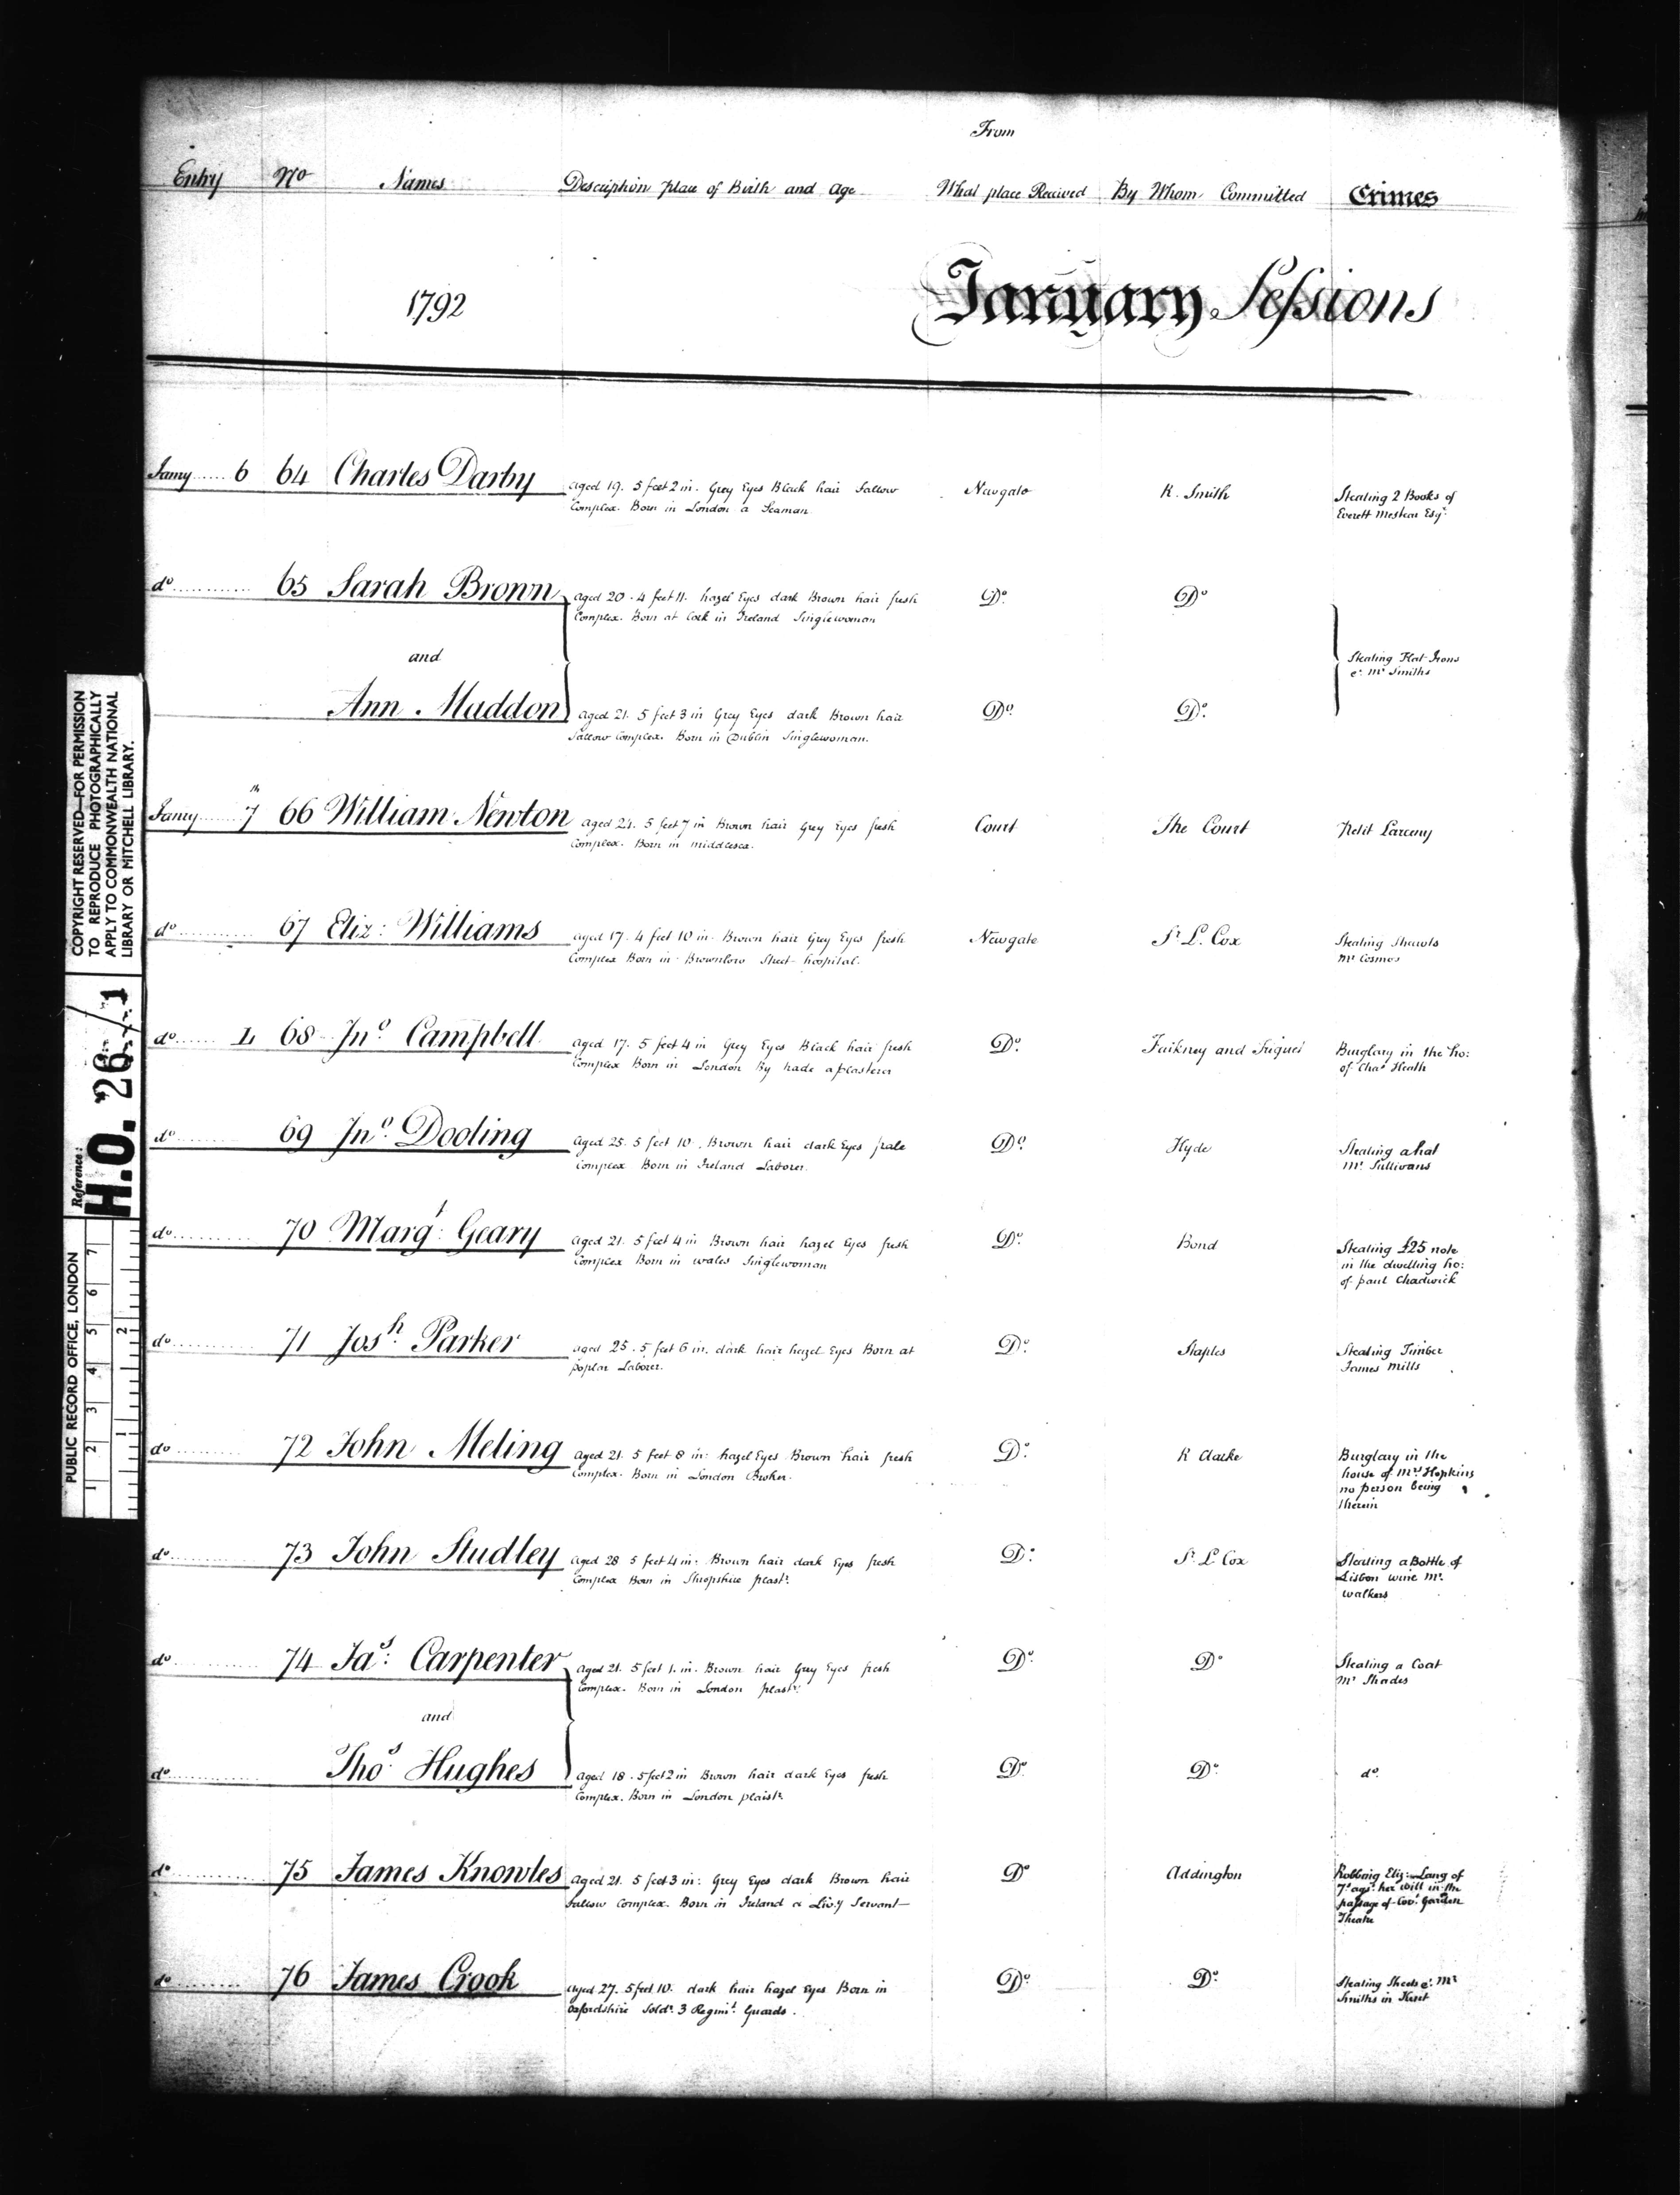 From
Entry No Names Description place of Birth and Age What place Received By Whom Committed Crimes
1792 January Sessions
Jany 6 64 Charles Darby aged 19. 5 feet 2 in. Grey Eyes Black hair Sallow Newgate R. Smith Stealing 2 Books of
Complex. Born in London a Seaman Everett Esqr.
do 65 Sarah Brown aged 20. 4 feet 11. hazel Eyes dark Brown hair fresh Do. Do
Complex. Born at Cork in Ireland Singlewoman
and Stealing Flat Irons
Mr Smiths
Ann Maddon aged 21. 5 feet 3 in Grey Eyes dark Brown hair Do. Do.
Sallow Complex. Born in Dublin Singlewoman.
Jany 7th 66 William Newton aged 24. 5 feet 7 in Brown hair Grey Eyes fresh Court The Court Petit Larceny
Complex. Born in middlesex.
do 67 Eliz: Williams aged 17. 4 feet 10 in. Brown hair Grey Eyes fresh Newgate Sr. L. Cox Stealing Shawls
Complex Born in Brownlow Street hospital. Mr Cosmos
do L 68 Jno Campbell aged 17. 5 feet 4 in Grey Eyes Black hair fresh Do. and Burglary in the ho:
Complex Born in London By trade a plasterer of Chas Heath
do 69 Jno. Dooling aged 25. 5 feet 10. Brown hair dark Eyes pale Do Hyde Stealing a hat
Complex. Born in Ireland Laborer. Mr. Sullivans
do 70 Margt: Geary aged 21. 5 feet 4 in Brown hair hazel Eyes fresh Do. Bond Stealing £25 note
Complex Born in Wales Singlewoman in the dwelling ho:
of paul Chadwick
do 71 Josh. Parker aged 25. 5 feet 6 in. dark hair hazel Eyes Born at Do. Staples Stealing Timber
poplar Laborer. James Mills
do 72 John Meling aged 21. 5 feet 8 in: hazel Eyes Brown hair fresh Do. R Clarke Burglary in the
Complex. Born in London Broker. house of Mrs. Hopkins
no person being
therein
do 73 John Studley aged 28 5 feet 4 in: Brown hair dark Eyes fresh Do. Sr. L. Cox Stealing a Bottle of
Complex Born in Shropshire plastr. Lisbon wine Mr.
walkers
do 74 Jas: Carpenter aged 21. 5 feet 1. in. Brown hair Grey Eyes fresh Do. Do Stealing a Coat
Complex. Born in London plastr. Mr Shades
and
do Thos Hughes aged 18. 5 feet 2 in Brown hair dark Eyes fresh Do. Do. do.
Complex. Born in London plaistr.
do 75 James Knowles aged 21. 5 feet 3 in: Grey Eyes dark Brown hair Do Addington Robbing Eliz: Lang of
Sallow Complex. Born in Ireland a Livy Servant 7s agst. her will in the
passage of Covt. Garden
Theatre
do 76 James Crook aged 27. 5 feet 10. dark hair hazel Eyes Born in Do. Do. Stealing Sheets Mr
Oxfordshire Soldr. 3 Regimt. Guards. Smiths in Kent
COPYRIGHT RESERVED—FOR PERMISSION
TO REPRODUCE PHOTOGRAPHICALLY
APPLY TO COMMONWEALTH NATIONAL
LIBRARY OR MITCHELL LIBRARY.
Reference:
H.O. 26/1
PUBLIC RECORD OFFICE, LONDON
1 2 3 4 5 6 7
1 2